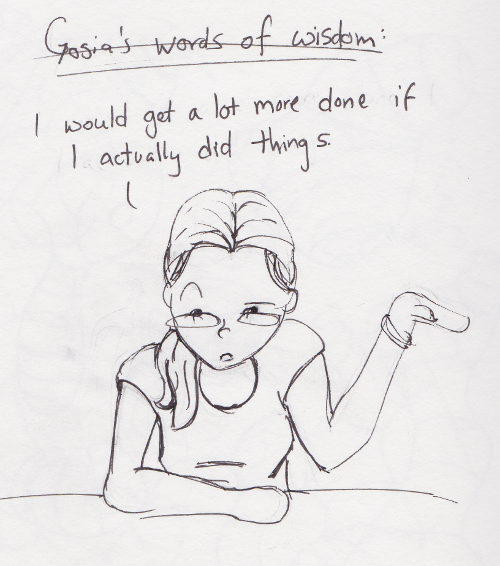 Gosia's words of wisdom:
I would get a lot more done if
I actually did things.